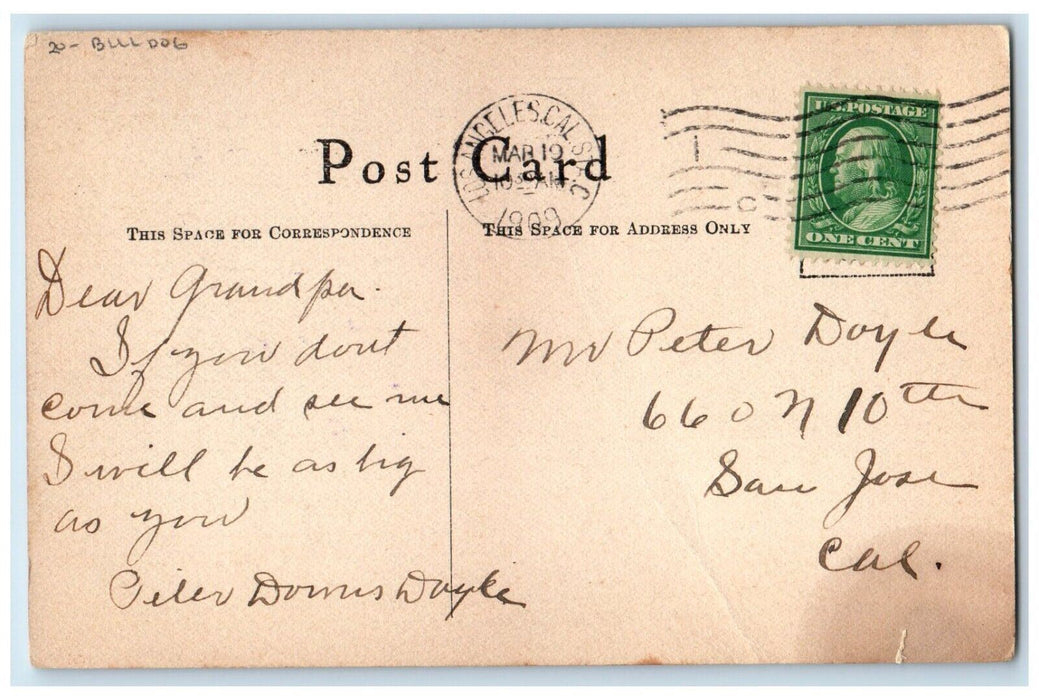 20- BULLDOG
Post Card
LOS ANGELES, CAL. STA. C
MAR 19
10 30 AM
1909
U.S. POSTAGE
ONE CENT
THIS SPACE FOR CORRESPONDENCE
THIS SPACE FOR ADDRESS ONLY
Dear Grandpa.
If you dont
come and see me
I will be as big
as you
Peter Downs Doyle
Mr Peter Doyle
660 N 10th
San Jose
Cal.